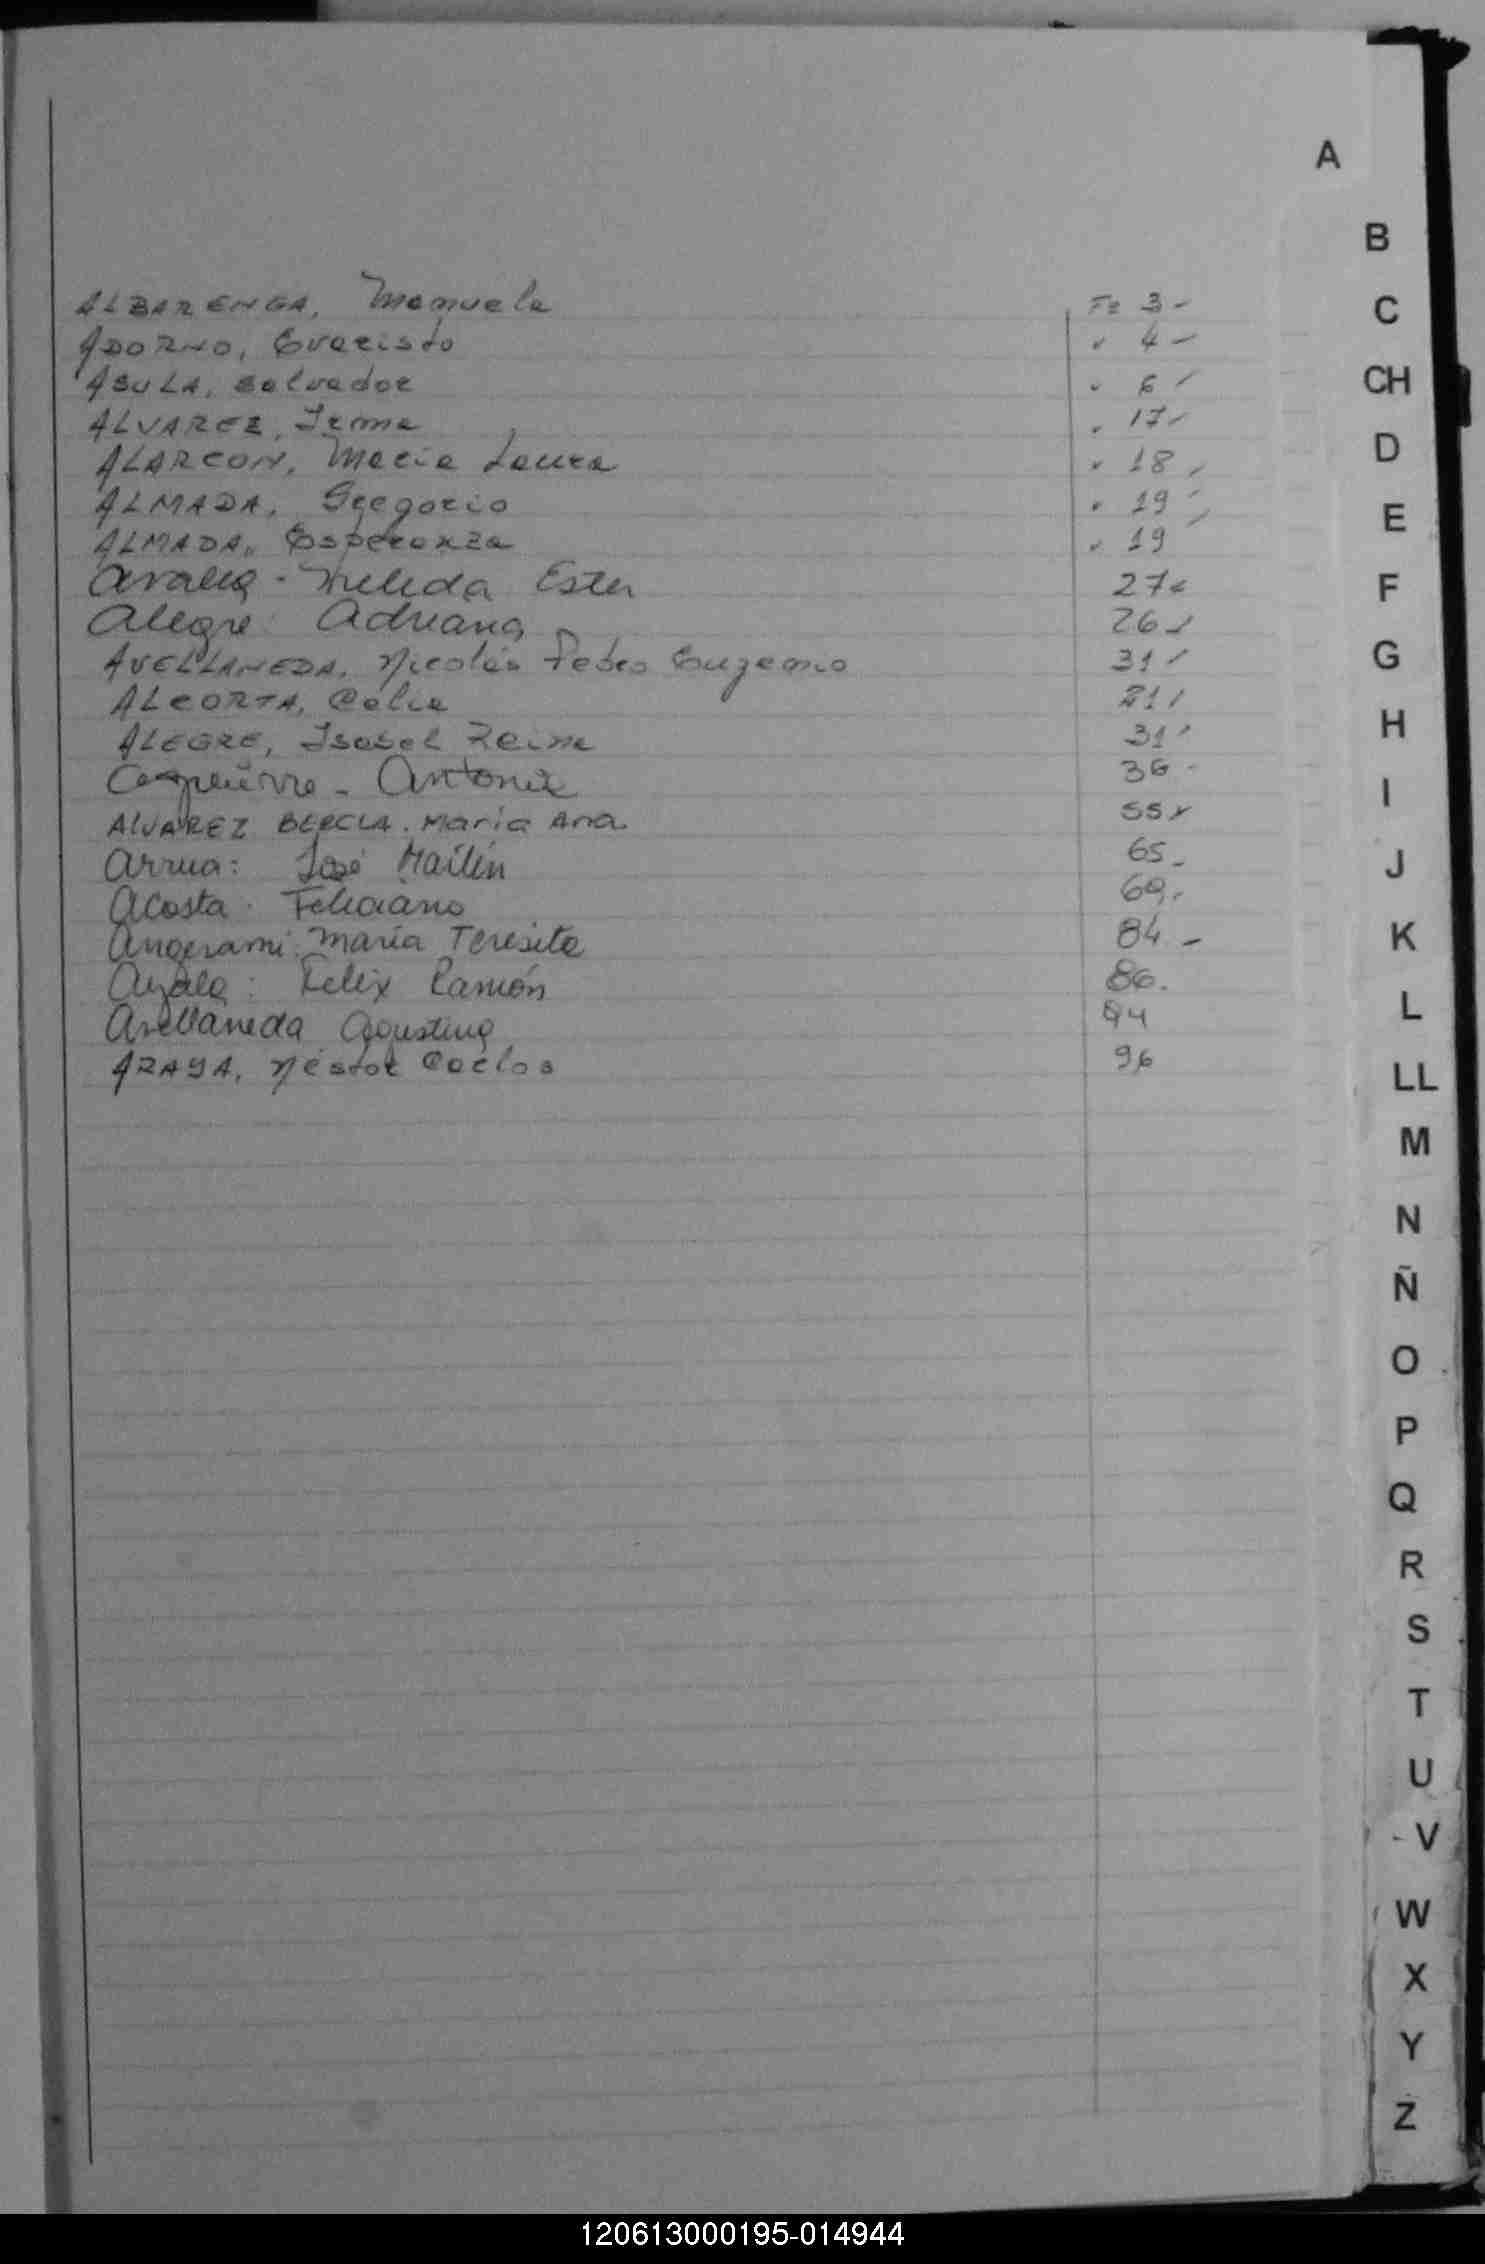 A
B
C
CH
D
E
F
G
H
I
J
K
L
LL
M
N
Ñ
O
P
Q
R
S
T
U
V
W
X
Y
Z
ALBARENGA, Manuela Fº 3-
ADORNO, Evaristo " 4-
ASULA, Salvador " 6
ALVAREZ, Irma " 17
ALARCON, Maria Laura " 18
ALMADA, Gregorio " 19
ALMADA, Esperanza " 19
Nelida Ester 27
Alegre: Adriana 26
AVELLANEDA, Nicolás Pedro Eugenio 31
ALCORTA, Celia 21
ALEGRE, Isabel Reina 31
Antonia 36-
ALVAREZ María Ana 55
Arrua: José Mailin 65-
Acosta. Feliciano 69.
Angerami: María Teresita 84-
Ayala: Felix Ramón 86.
Avellaneda Agustina 94
ARAYA, Néstor Carlos 96
120613000195-014944